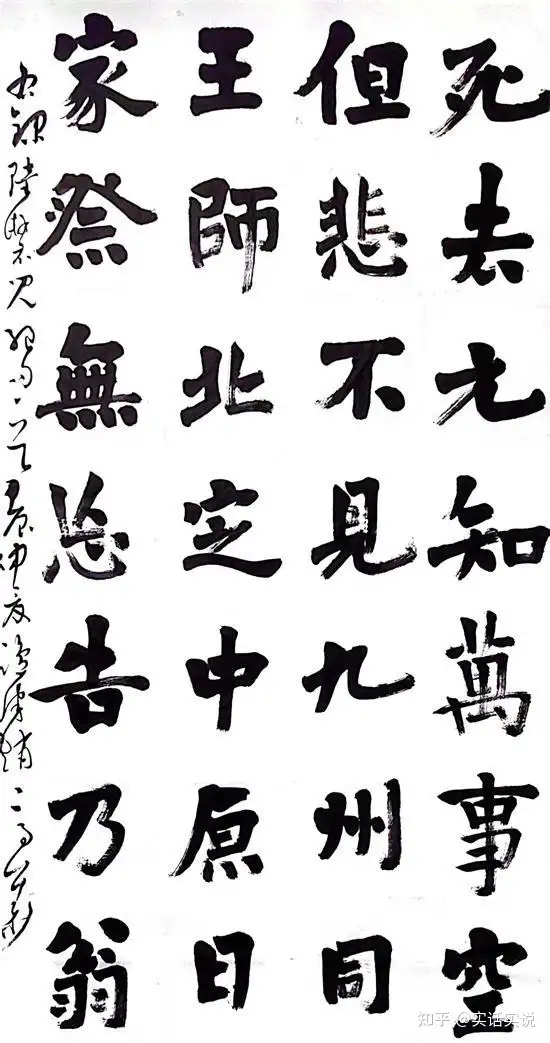 死去元知萬事空
但悲不見九州同
王師北定中原日
家祭無忘告乃翁
右錄陸
知乎 @实话实说